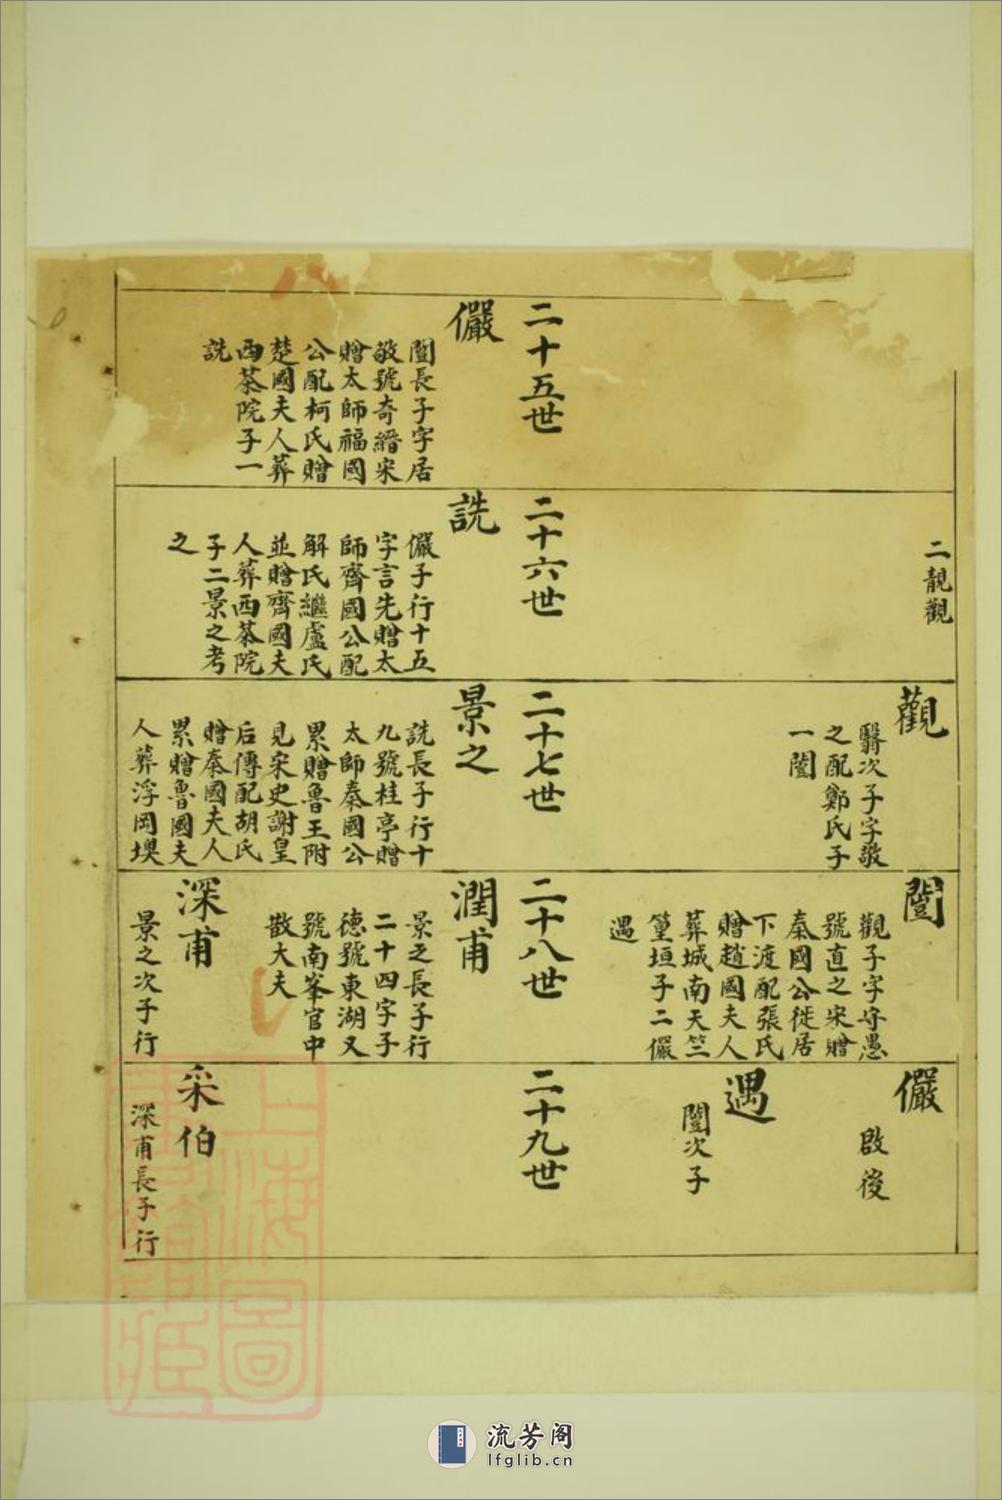 二靚觀
觀
翳次子字敬
之配鄭氏子
一誾
誾
觀子字守愚
號直之宋贈
秦國公徙居
下渡配張氏
贈趙國夫人
葬城南天竺
篁垣子二儼
遇
儼
啟後
遇
誾次子
二十五世
儼
誾長子字居
敬號奇縉宋
贈太師福國
公配柯氏贈
楚國夫人葬
西茶院子一
詵
二十六世
詵
儼子行十五
字言先贈太
師齊國公配
解氏繼盧氏
並贈齊國夫
人葬西茶院
子二景之考
之
二十七世
景之
詵長子行十
九號桂亭贈
太師秦國公
累贈魯王附
見宋史謝皇
后傳配胡氏
贈秦國夫人
累贈魯國夫
人葬浮岡墺
二十八世
潤甫
景之長子行
二十四字子
德號東湖又
號南峯官中
散大夫
深甫
景之次子行
二十九世
采伯
深甫長子行
上海圖
書館藏
流芳阁
lfglib.cn